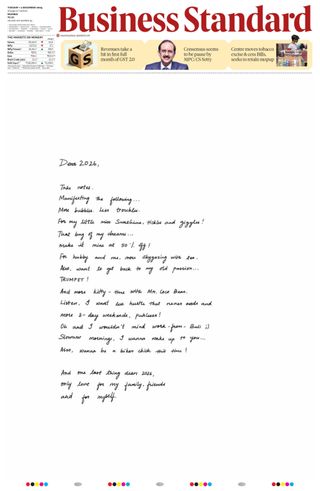 Business Standard
THE MARKETS ON MONDAY
GS
Revenues take a
hit in first full
month of GST 2.0
Consensus seems
to be pause by
MPC: CS Setty
Centre moves tobacco
excise & cess Bills,
seeks to retain mopup
Dear 2026,
Take notes.
Manifesting the following...
More bubbles, less troubles.
For my little miss Sunshine, tickles and giggles!
That bag of my dreams...
make it mine at 50% off!
For hubby and me, more skygazing with tea.
Also, want to get back to my old passion...
TRUMPET!
And more kitty-time with Mr. Coco Bean.
Listen, I want less hustle that never ends and
more 3-day weekends, puhleez!
Oh and I wouldn't mind work-from- Bali :)
Slowww mornings, I wanna wake up to you...
Also, wanna be a biker chick this time!
And one last thing dear 2026,
only love for my family, friends
and for myself.